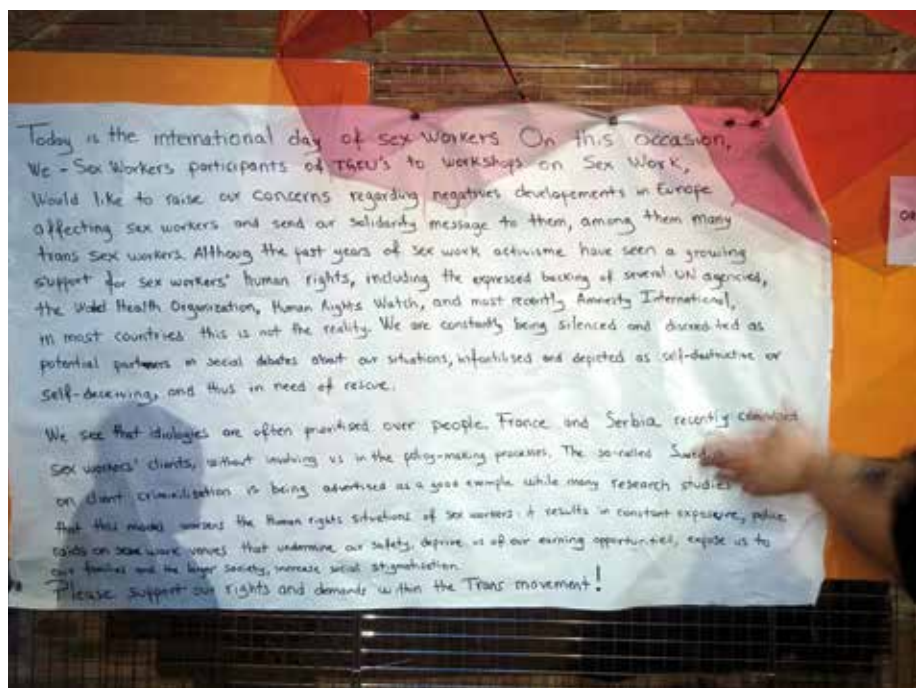 Today is the international day of sex workers On this occasion,
We - Sex Workers participants of TGEU's to workshops on Sex Work,
Would like to raise our concerns regarding negatives developements in Europe
affecting sex workers and send our solidarity message to them, among them many
trans sex workers. Althoug the past years of sex work activisme have seen a growing
support for sex workers' human rights, including the expressed backing of several UN agencies,
the World Health Organization, Human Rights Watch, and most recently Amnesty International,
in most countries this is not the reality. We are constantly being silenced and discredited as
potential partners in social debates about our situations, infantilised and depicted as self-destructive or
self-deceiving, and thus in need of rescue.
We see that idiologies are often prioritised over people. France and Serbia recently
sex workers' clients, without involving us in the policy-making processes. The so-called
on client criminilization is being advertised as a good exmple while many research studies
that this model worsens the Human rights situations of sex workers: it results in constant exposure, police
raids on work venues that undermine our safety, deprive us of our earning opportunities, expose us to
our families and the larger society, increase social stigmatisation.
Please support our rights and demands within the Trans movement!